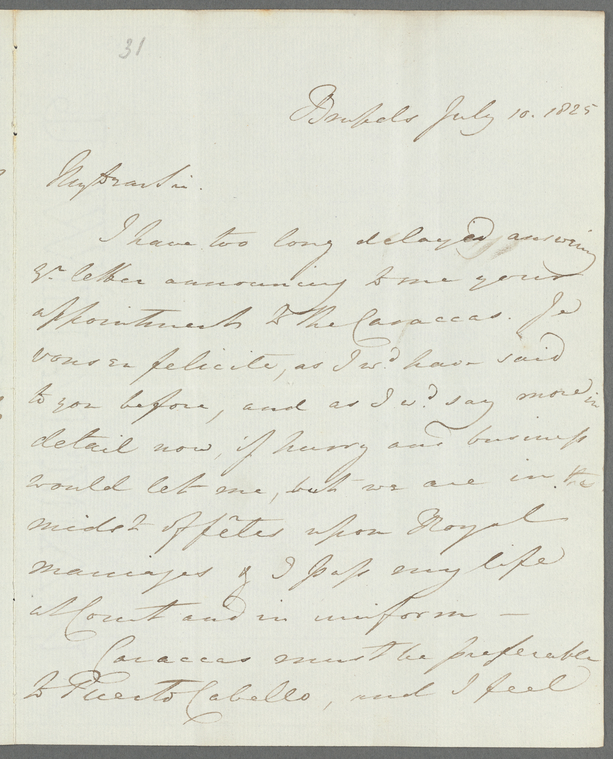 31
Brussels July 10. 1825
My Dear Sir.
I have too long delayed answering
yr. letter announcing to me your
appointment to the Caraccas. Je
vous en felicite, as I wd. have said
to you before, and as I wd. say more in
detail now, if hurry and business
would let me, but we are in the
midst of fêtes upon Royal
marriages & I pass my life
at Court and in uniform —
Caraccas must be preferable
to Puerto Cabello, and I feel